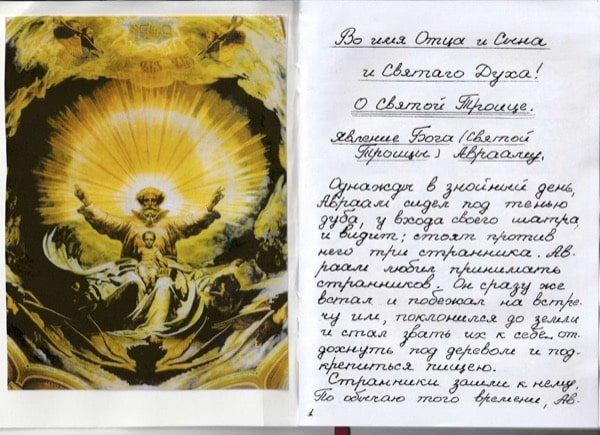 Во имя Отца и Сына
и Святаго Духа!
О Святой Троице.
Явление Бога (Святой
Троицы) Аврааму.
Однажды в знойный день,
Авраам сидел под тенью
дуба, у входа своего шатра
и видит: стоят против
него три странника. Ав-
раам любил принимать
странников. Он сразу же
встал и побежал на встре-
чу им, поклонился до земли
и стал звать их к себе от-
дохнуть под деревом и под-
крепиться пищею.
Странники зашли к нему.
По обычаю того времени, Ав-